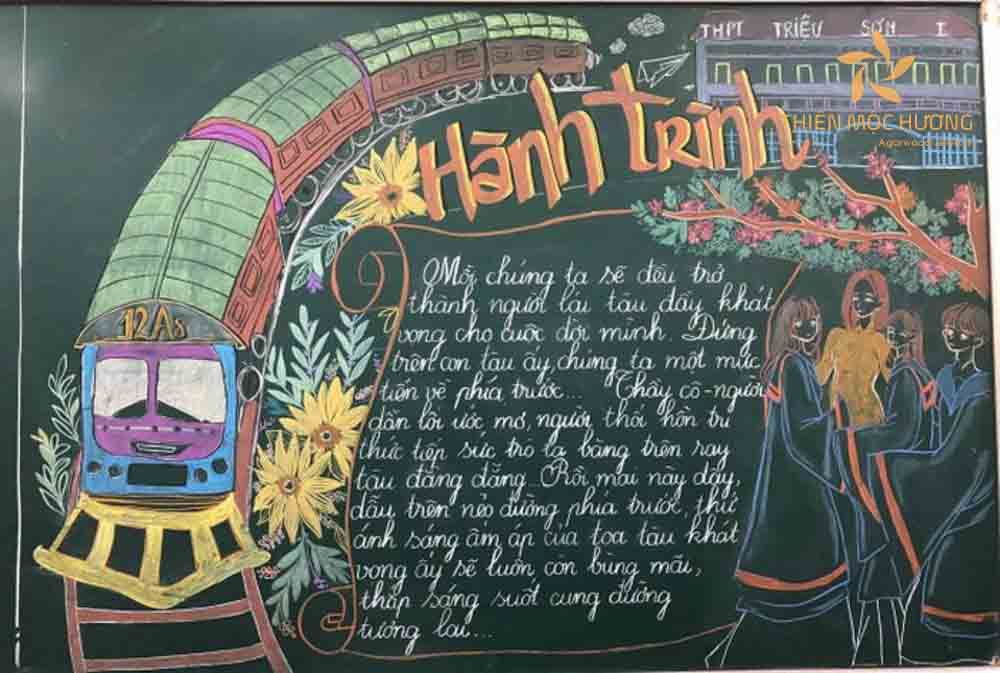 THPT TRIỆU SƠN I
THIÊN MỘC HƯƠNG
Hành trình
12A8
Mỗi chúng ta sẽ đều trở
thành người lái tàu đầy khát
vọng cho cuộc đời mình. Đứng
trên con tàu ấy, chúng ta một mực
tiến về phía trước... Thầy cô - người
dẫn lối ước mơ, người thổi hồn tri
thức tiếp sức trò ta băng trên ray
tàu đằng đẵng... Rồi mai này đây,
dẫu trên nẻo đường phía trước, thứ
ánh sáng ấm áp của toa tàu khát
vọng ấy sẽ luôn còn bùng mãi,
thắp sáng suốt cung đường
tương lai...